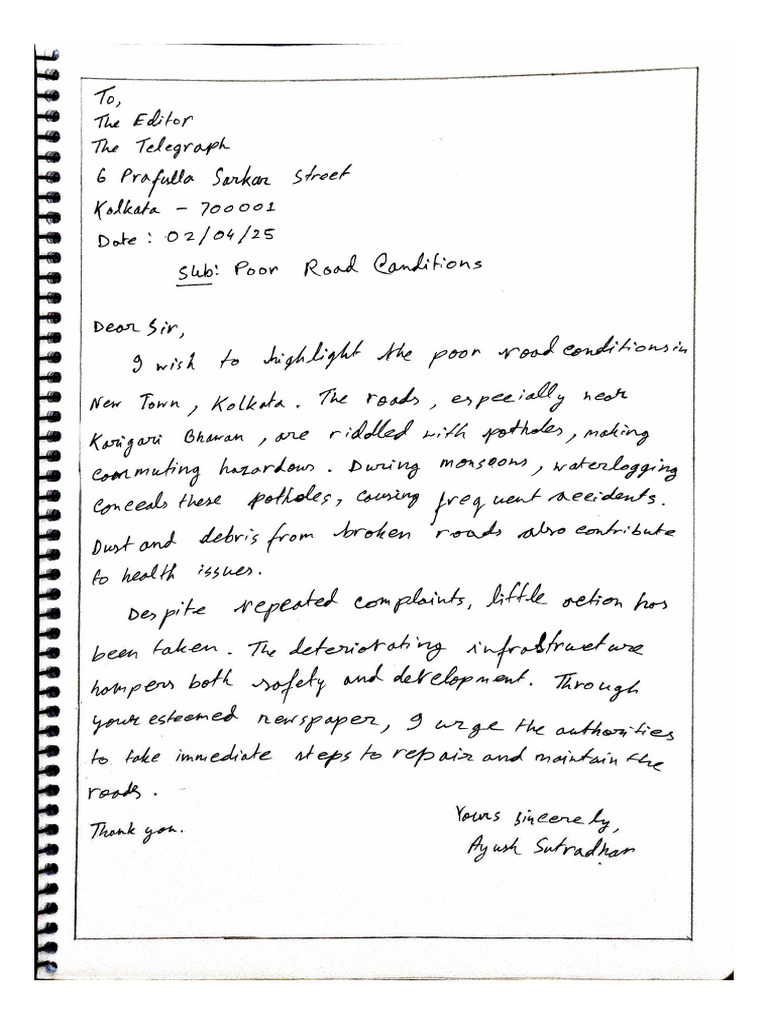 To,
The Editor
The Telegraph
6 Prafulla Sarkar Street
Kolkata - 700001
Date : 02/04/25
Sub: Poor Road Conditions
Dear Sir,
I wish to highlight the poor road conditions in
New Town, Kolkata. The roads, especially near
Karigari Bhawan, are riddled with potholes, making
commuting hazardous. During monsoons, waterlogging
conceals these potholes, causing frequent accidents.
Dust and debris from broken roads also contribute
to health issues.
Despite repeated complaints, little action has
been taken. The deteriorating infrastructure
hampers both safety and development. Through
your esteemed newspaper, I urge the authorities
to take immediate steps to repair and maintain the
roads.
Thank you.
Yours sincerely,
Ayush Sutradhar